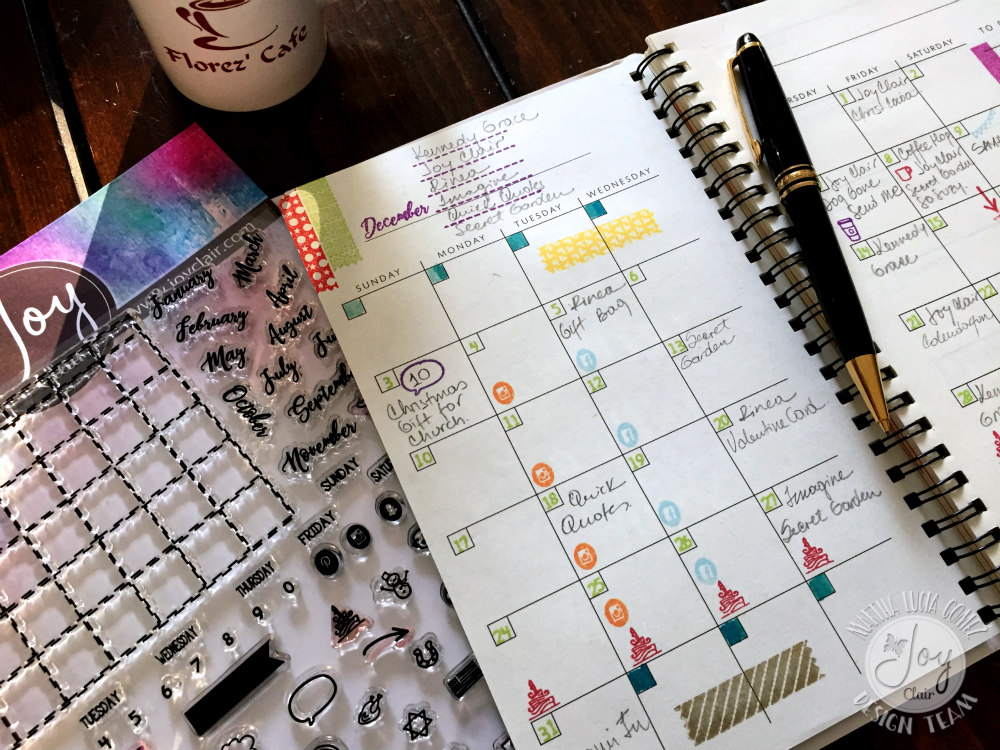 Florez' Cafe
Kennedy Grace
Joy Clair
Rinea
Imagine
Quick Quotes
Secret Garden
December
SUNDAY
MONDAY
TUESDAY
WEDNESDAY
5
Rinea
Gift Bag
6
3
10
Christmas
Gift for
Church.
4
12
13
Secret
Garden
10
11
19
20
Rinea
Valentine Card
17
18
Quick
Quotes
26
27
Imagine
Secret Garden
24
25
31
FRIDAY
SATURDAY
TO
1
Joy Clair
2
Joy Clair
Send Me
8
Coffee Hop
Joy Clair
Secret Garden
9
14
Kennedy
Grace
15
21
Joy Clair
22
28
Joy
www.joyclair.com
January
March
February
April
May
August
July
October
September
November
SUNDAY
FRIDAY
THURSDAY
WEDNESDAY
TUESDAY
0
9
8
7
6
5
4
MARTHA LUCIA GOMEZ
Joy
Clair
DESIGN TEAM